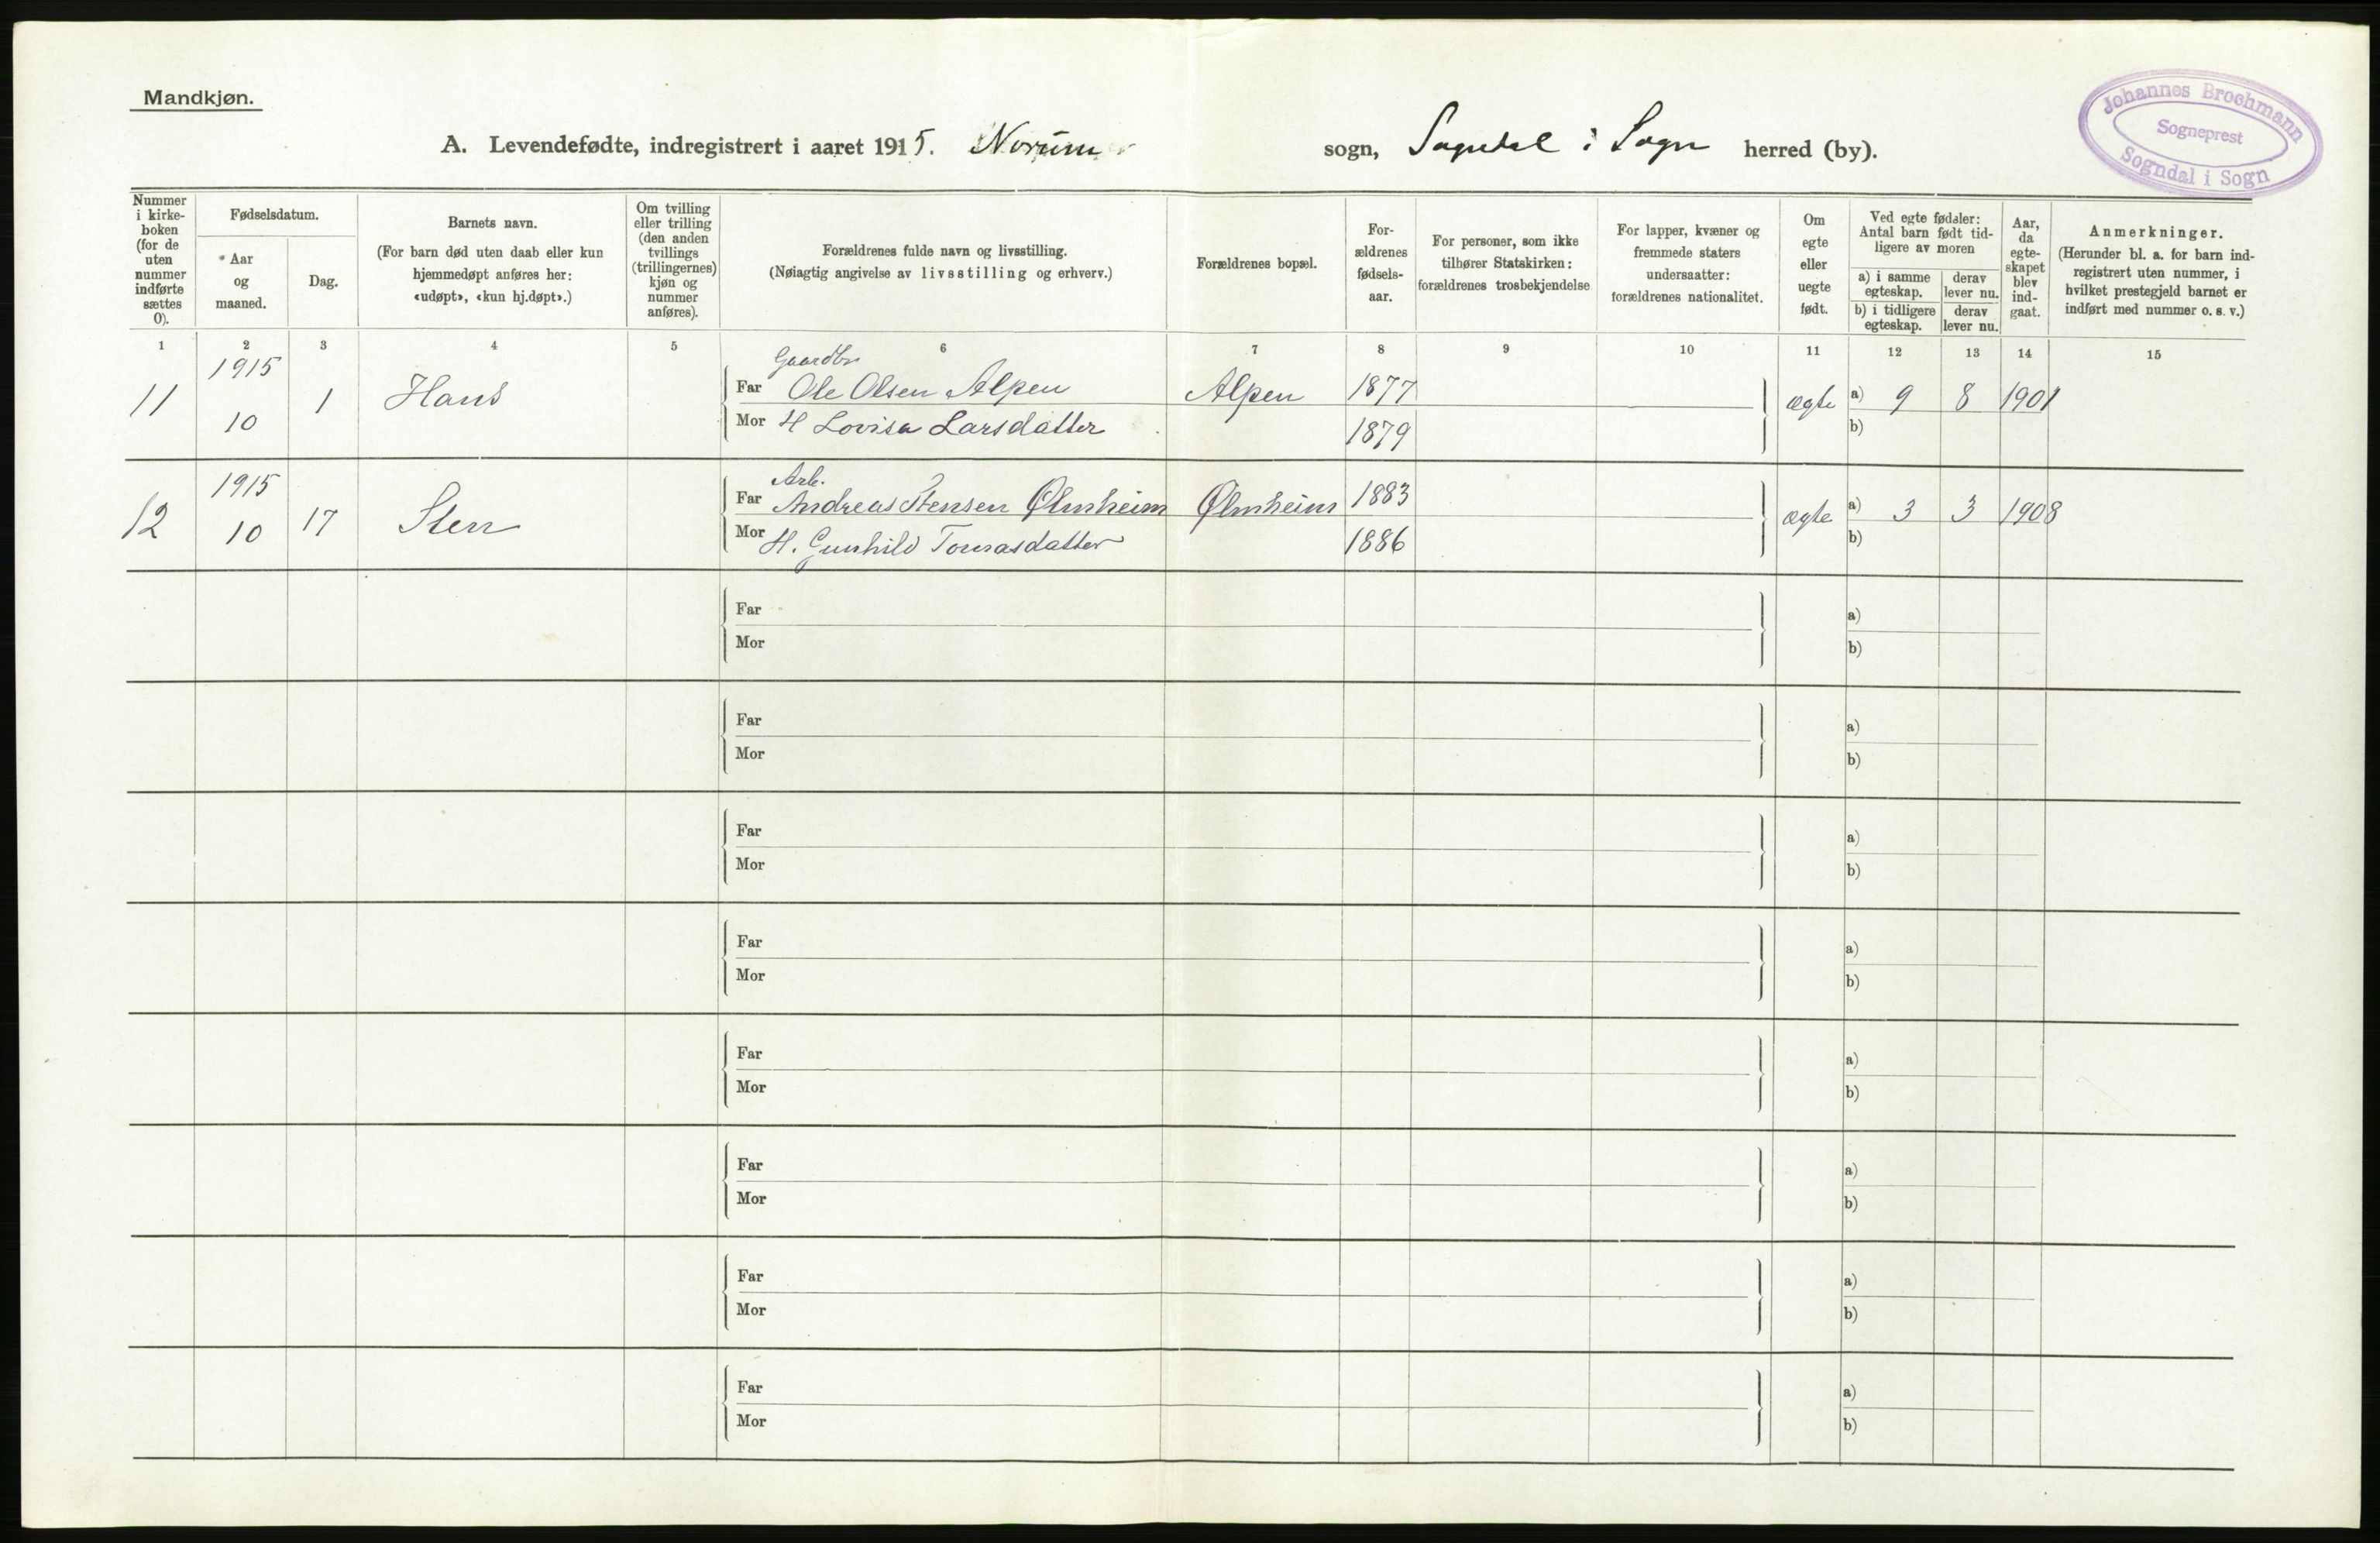 Mandkjøn.
A. Levendefødte, indregistrert i aaret 1915. Norum sogn, Sogndal i Sogn herred (by).
Johannes Brochmann
Sogneprest
Sogndal i Sogn
Nummer i kirke-boken (for de uten nummer indførte sættes 0).
Fødselsdatum.
* Aar og maaned.
Dag.
Barnets navn.
(For barn død uten daab eller kun hjemmedøpt anføres her: «udøpt», «kun hj.døpt».)
Om tvilling eller trilling (den anden tvillings (trillingernes) kjøn og nummer anføres).
Forældrenes fulde navn og livsstilling.
(Nøiagtig angivelse av livsstilling og erhverv.)
Forældrenes bopæl.
For-ældrenes fødsels-aar.
For personer, som ikke tilhører Statskirken: forældrenes trosbekjendelse
For lapper, kvæner og fremmede staters undersaatter: forældrenes nationalitet.
Om egte eller uegte født.
Ved egte fødsler: Antal barn født tid-ligere av moren
a) i samme egteskap.
derav lever nu.
b) i tidligere egteskap.
derav lever nu.
Aar, da egte-skapet blev ind-gaat.
Anmerkninger.
(Herunder bl. a. for barn ind-registrert uten nummer, i hvilket prestegjeld barnet er indført med nummer o. s. v.)
1 2 3 4 5 6 7 8 9 10 11 12 13 14 15
1915 Gaardbr
11 10 1 Hans Far Ole Olsen Alpen Alpen 1877 ægte a) 9 8 1901
Mor H Lovisa Larsdatter 1879 b)
1915 Arb.
12 10 17 Sten Far Andreas Stensen Ølmheim Ølmheim 1883 ægte a) 3 3 1908
Mor H. Gunhild Tomasdatter 1886 b)
Far a)
Mor b)
Far a)
Mor b)
Far a)
Mor b)
Far a)
Mor b)
Far a)
Mor b)
Far a)
Mor b)
Far a)
Mor b)
Far a)
Mor b)